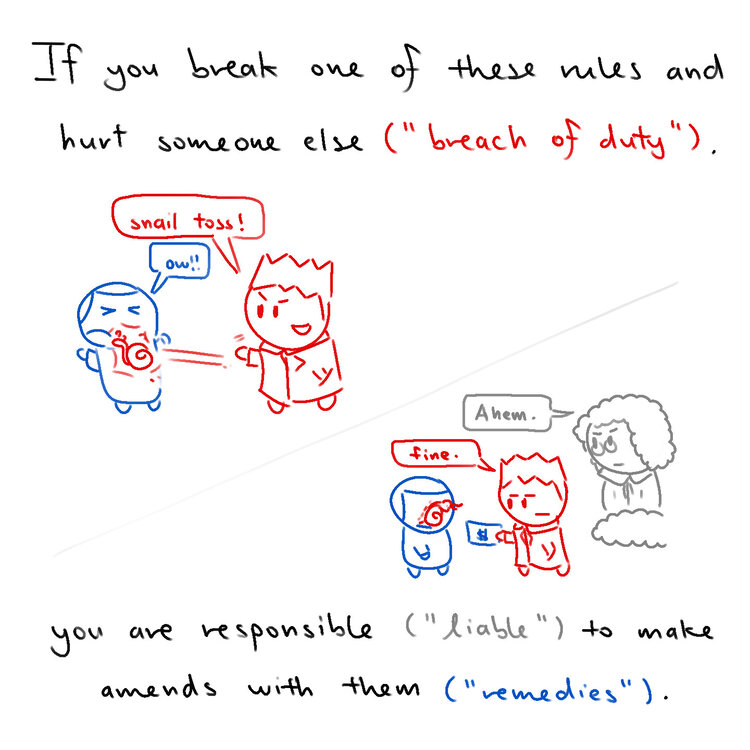 If you break one of these rules and
hurt someone else ("breach of duty").
snail toss!
ow!!
Ahem.
fine.
$
you are responsible ("liable") to make
amends with them ("remedies").